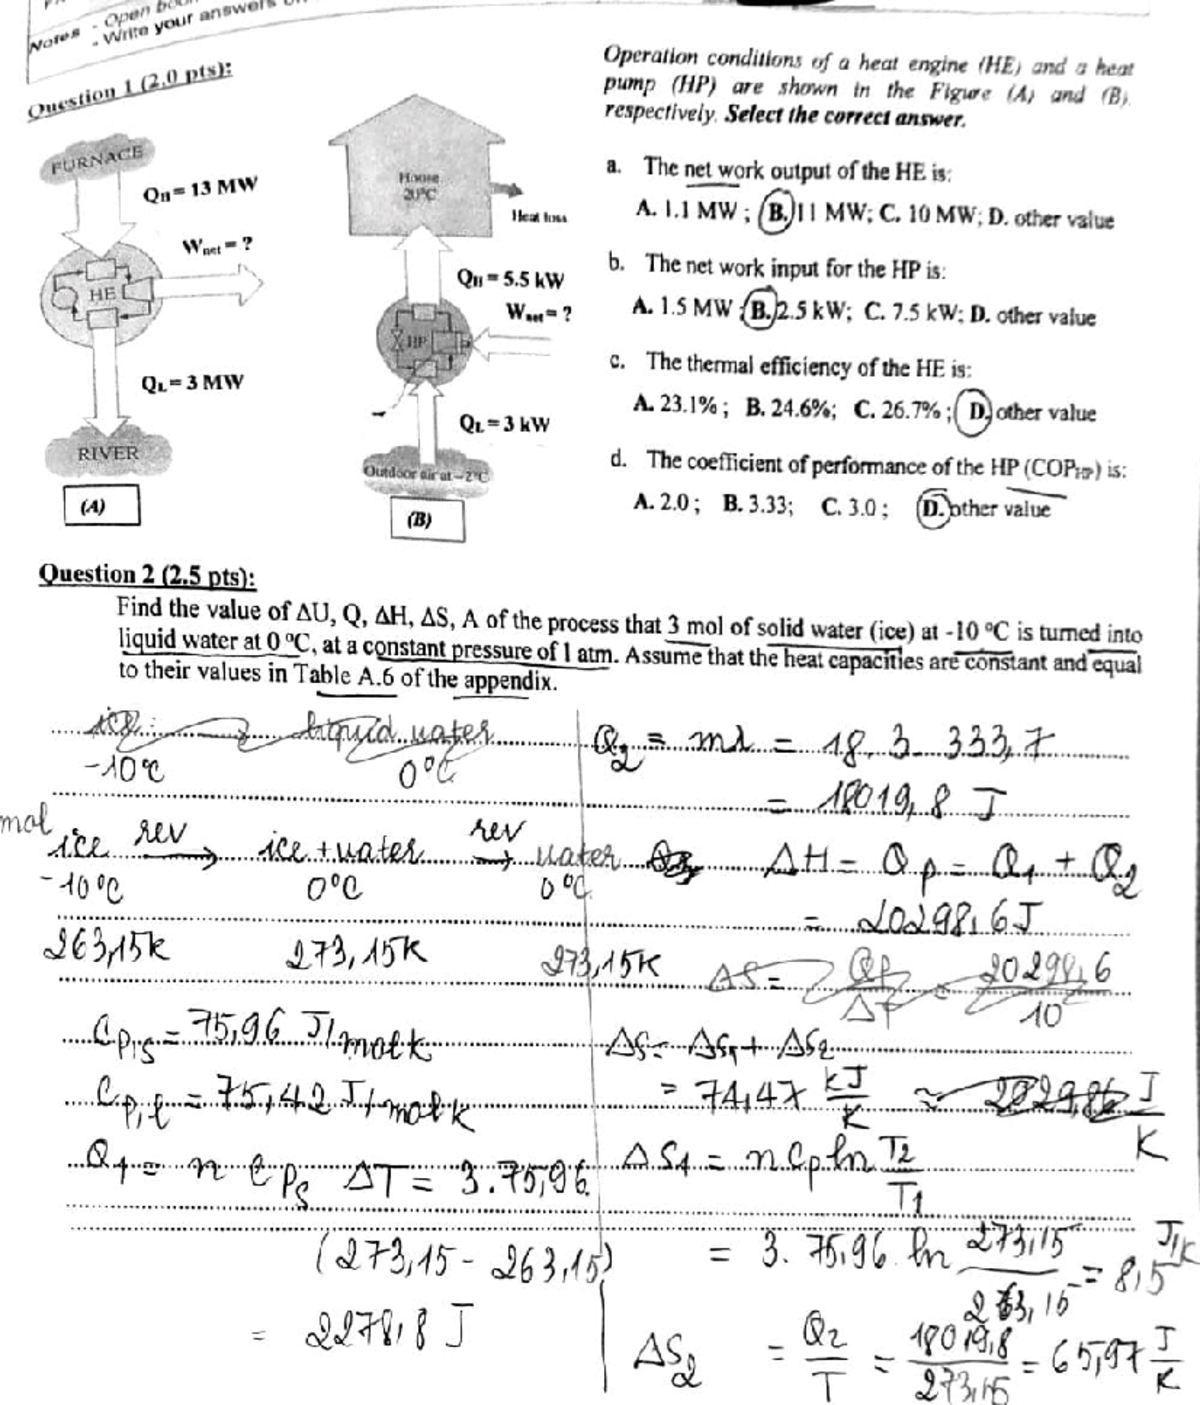 Notes - Open
- Write your answers
Question 1 (2.0 pts):
Operation conditions of a heat engine (HE) and a heat
pump (HP) are shown in the Figure (A) and (B),
respectively. Select the correct answer.
FURNACE
QH = 13 MW
Wnet = ?
HE
QL = 3 MW
RIVER
(A)
House
20°C
Heat loss
QH = 5.5 kW
Wnet = ?
HP
QL = 3 kW
Outdoor air at -2°C
(B)
a. The net work output of the HE is:
A. 1.1 MW ; B. 11 MW; C. 10 MW; D. other value
b. The net work input for the HP is:
A. 1.5 MW ; B. 2.5 kW; C. 7.5 kW; D. other value
c. The thermal efficiency of the HE is:
A. 23.1% ; B. 24.6%; C. 26.7% ; D. other value
d. The coefficient of performance of the HP (COPHP) is:
A. 2.0 ; B. 3.33; C. 3.0 ; D. other value
Question 2 (2.5 pts):
Find the value of ΔU, Q, ΔH, ΔS, A of the process that 3 mol of solid water (ice) at -10 °C is turned into
liquid water at 0 °C, at a constant pressure of 1 atm. Assume that the heat capacities are constant and equal
to their values in Table A.6 of the appendix.
ice liquid water
-10°C 0°C
mol
ice rev → ice + water rev → water
-10°C 0°C 0°C
263,15K 273,15K 273,15K
Cp,s = 75,96 J/molK
Cp,l = 75,42 J/molK
Q1 = n CpS ΔT = 3.75,96.
(273,15 - 263,15)
= 2278,8 J
Q2 = mλ = 18.3.333,7
= 18019,8 J
ΔH = Qp = Q1 + Q2
= 20298,6 J
ΔS = Qp/ΔT = 20298,6/10
ΔS = ΔS1 + ΔS2
= 74,47 kJ/K = 2029,86 J/K
ΔS1 = n Cp ln T2/T1
= 3. 75,96. ln 273,15/263,15 = 8,5 J/K
ΔS2 = Q2/T = 18019,8/273,15 = 65,97 J/K